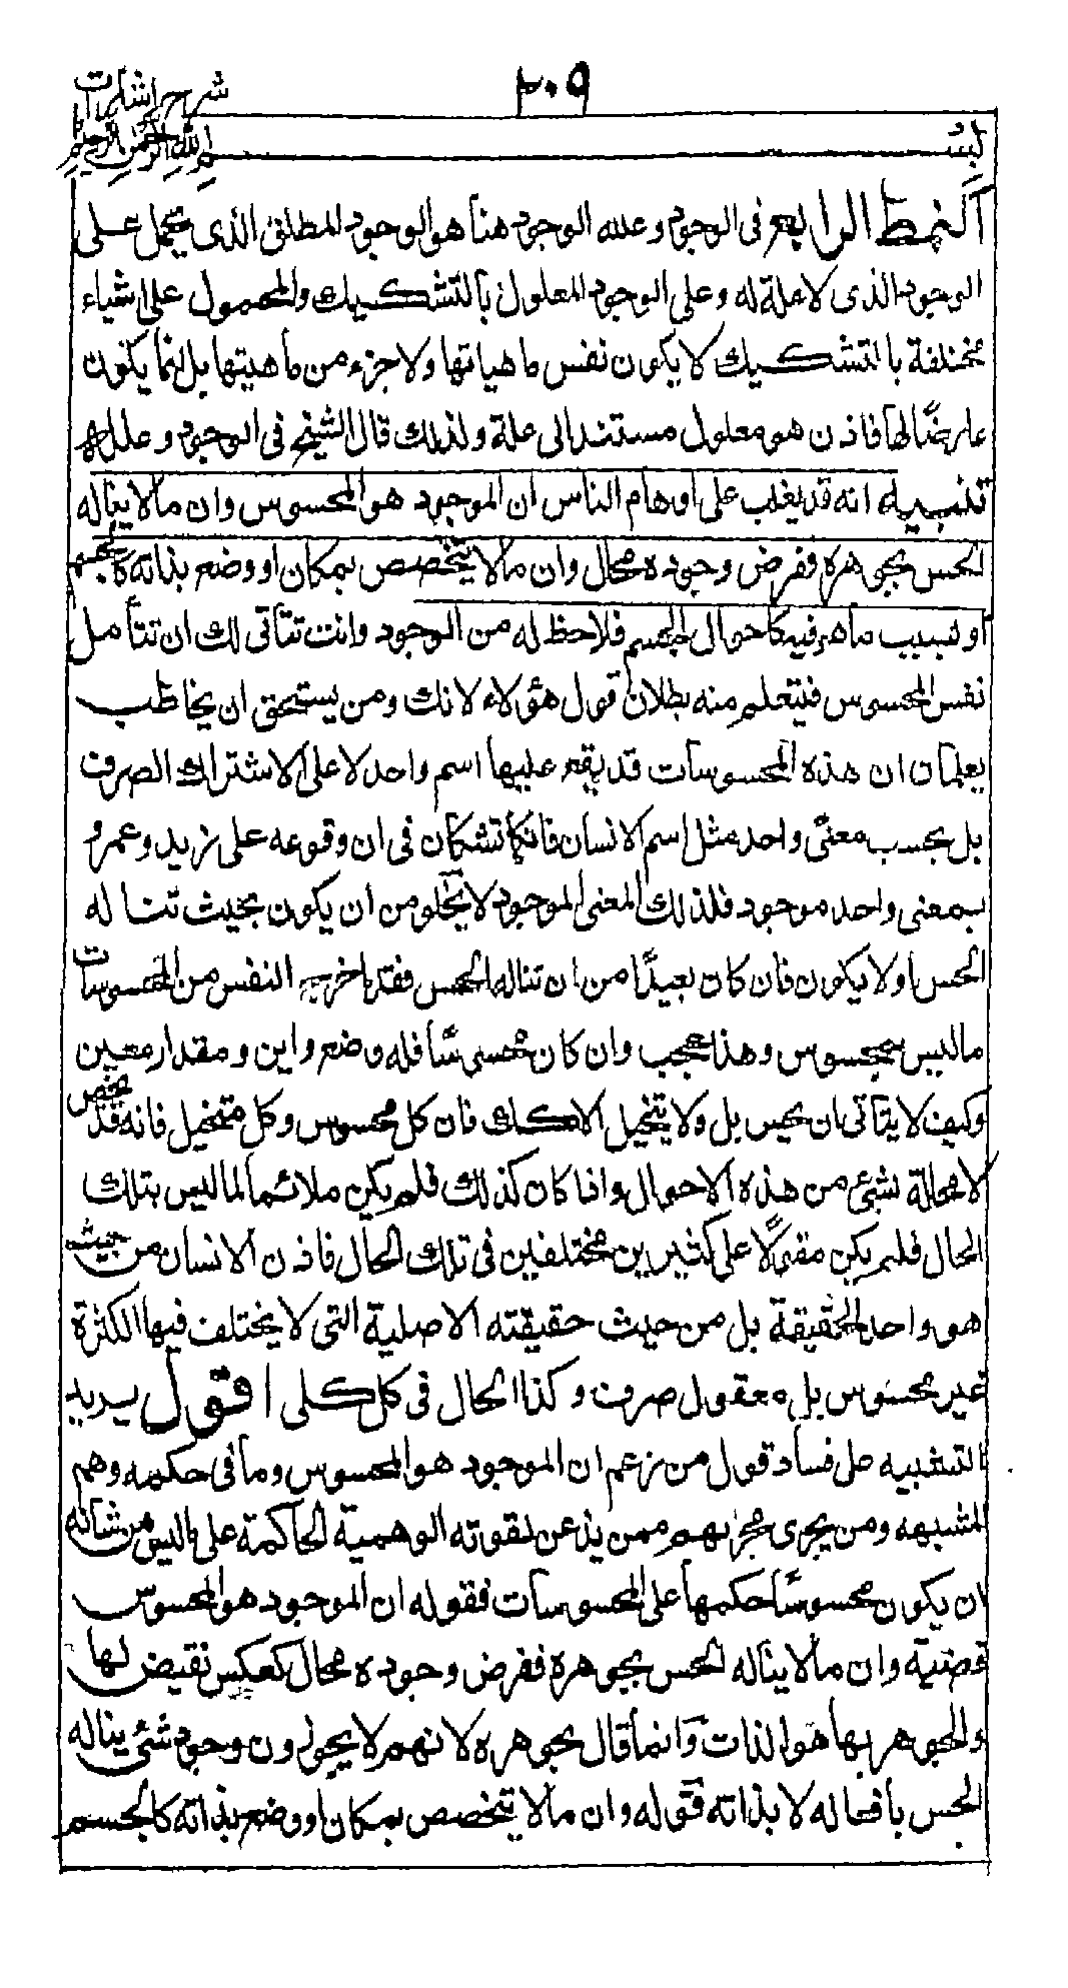 ٢٠٩
شرح إشارات
بسم الله الرحمن الرحيم
النمط الرابع في الوجود وعلله الوجود هنا هو الوجود المطلق الذى يحمل على
الوجود الذى لا علة له وعلى الوجود المعلول بالتشكيك والمحمول على اشياء
مختلفة بالتشكيك لا يكون نفس ماهياتها ولا جزء من ماهيتها بل انما يكون
عارضًا لها فاذن هو معلول مستند الى علة ولذلك قال الشيخ فى الوجود وعلله
تنبيه انه قد يغلب على اوهام الناس ان الموجود هو المحسوس وان مالا يناله
الحس بجوهره ففرض وجوده محال وان مالا يتخصص بمكان او وضع بذاته كالجسم
او بسبب ما هو فيه كاحوال الجسم فلا حظ له من الوجود وانت تتأتى لك ان تتأمل
نفس المحسوس فيتعلم منه بطلان قول هؤلاء لانك ومن يستحق ان يخاطب
يعلمان ان هذه المحسوسات قد يقع عليها اسم واحد لا على الاشتراك الصرف
بل بحسب معنًى واحد مثل اسم الانسان فانكما تشكان فى ان وقوعه على زيد وعمرو
بمعنى واحد موجود فلذلك المعنى الموجود لا يخلو من ان يكون بحيث تناله
الحس او لا يكون فان كان بعيدًا من ان تناله الحس فقد اخرج النفس من المحسوسات
ماليس بمحسوس وهذا عجب وان كان محسوسًا فله وضع واين ومقدار معين
وكيف لا يتاتى ان يحس بل ولا يتخيل الا كذلك فان كل محسوس وكل متخيل فانه قد تخصص
لا محالة بشئ من هذه الاحوال واذا كان كذلك فلم يكن ملائما لما ليس بتلك
الحال فلم يكن مقولًا على كثيرين مختلفين فى تلك الحال فاذن الانسان من حيث
هو واحد الحقيقة بل من حيث حقيقته الاصلية التى لا يختلف فيها الكثرة
غير محسوس بل معقول صرف وكذا الحال فى كل كلى اقول يريد
التنبيه على فساد قول من زعم ان الموجود هو المحسوس وما فى حكمه وهم
المشبهه ومن يجرى مجراهم ممن يذعن لقوته الوهمية الحاكمة على ماليس من شانه
ان يكون محسوسًا حكمها على المحسوسات فقوله ان الموجود هو المحسوس
قضية وان مالا يناله الحس بجوهره ففرض وجوده محال كعكس نقيض لها
والجوهر بها هو الذات وانما قال بجوهره لانهم لا يجوزون وجود شئ يناله
الحس بأفعاله لا بذاته قوله وان مالا يتخصص بمكان او وضع بذاته كالجسم